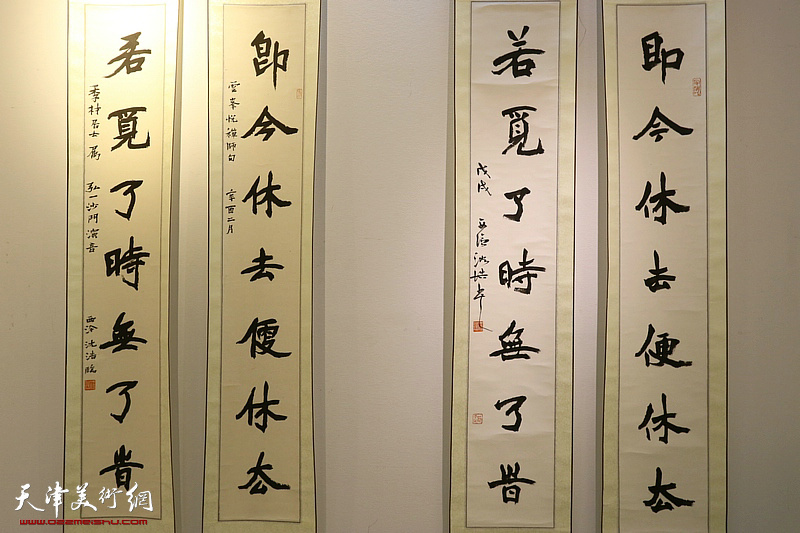 即今休去便休去
若覓了時無了昔
戊戌
即今休去便休去
雲峯悅禪師句 辛酉二月
若覓了時無了旹
季村居士屬 弘一沙門演音
天津美術網
www.022meishu.com